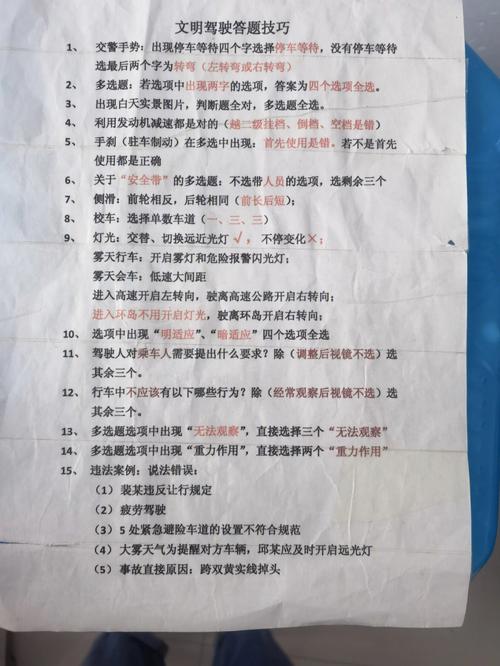 文明驾驶答题技巧
1、 交警手势：出现停车等待四个字选择停车等待，没有停车等待
选最后两个字为转弯（左转弯或右转弯）
2、 多选题：若选项中出现两字的选项，答案为四个选项全选。
3、 出现白天实景图片，判断题全对，多选题全选。
4、 利用发动机减速都是对的（越二级挂档、倒档、空档是错）
5、 手刹（驻车制动）在多选中出现：首先使用是错。若不是首先
使用都是正确
6、 关于“安全带”的多选题：不选带人员的选项，选剩余三个
7、 侧滑：前轮相反，后轮相同（前长后短）；
8、 校车：选择单数车道（一、三、三）
9、 灯光：交替、切换远近光灯√，不停变化×；
雾天行车：开启雾灯和危险报警闪光灯；
雾天会车：低速大间距
进入高速开启左转向，驶离高速公路开启右转向；
进入环岛不用开启灯光，驶离环岛开启右转向；
10、 选项中出现“明适应”、“暗适应”四个选项全选
11、 驾驶人对乘车人需要提出什么要求？除（调整后视镜不选）选
其余三个。
12、 行车中不应该有以下哪些行为？除（经常观察后视镜不选）选
其余三个。
13、 多选题选项中出现“无法观察”，直接选择三个“无法观察”
14、 多选题选项中出现“重力作用”，直接选择两个“重力作用”
15、 违法案例：说法错误：
（1）裴某违反让行规定
（2）疲劳驾驶
（3）5处紧急避险车道的设置不符合规范
（4）大雾天气为提醒对方车辆，邱某应及时开启远光灯
（5）事故直接原因：跨双黄实线掉头